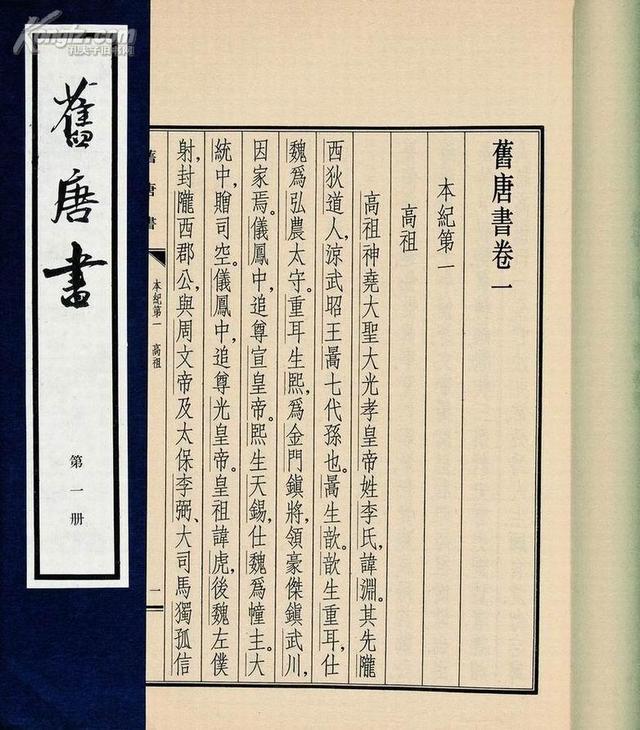 Kongfz.com
孔夫子旧书网
舊唐書
第一册
舊唐書卷一
本紀第一
高祖
高祖神堯大聖大光孝皇帝姓李氏，諱淵。其先隴
西狄道人，涼武昭王暠七代孫也。暠生歆。歆生重耳，仕
魏爲弘農太守。重耳生熙，爲金門鎮將，領豪傑鎮武川，
因家焉。儀鳳中，追尊宣皇帝。熙生天錫，仕魏爲幢主。大
統中，贈司空。儀鳳中，追尊光皇帝。皇祖諱虎，後魏左僕
射，封隴西郡公，與周文帝及太保李弼、大司馬獨孤信
舊唐書
本紀第一　高祖
一